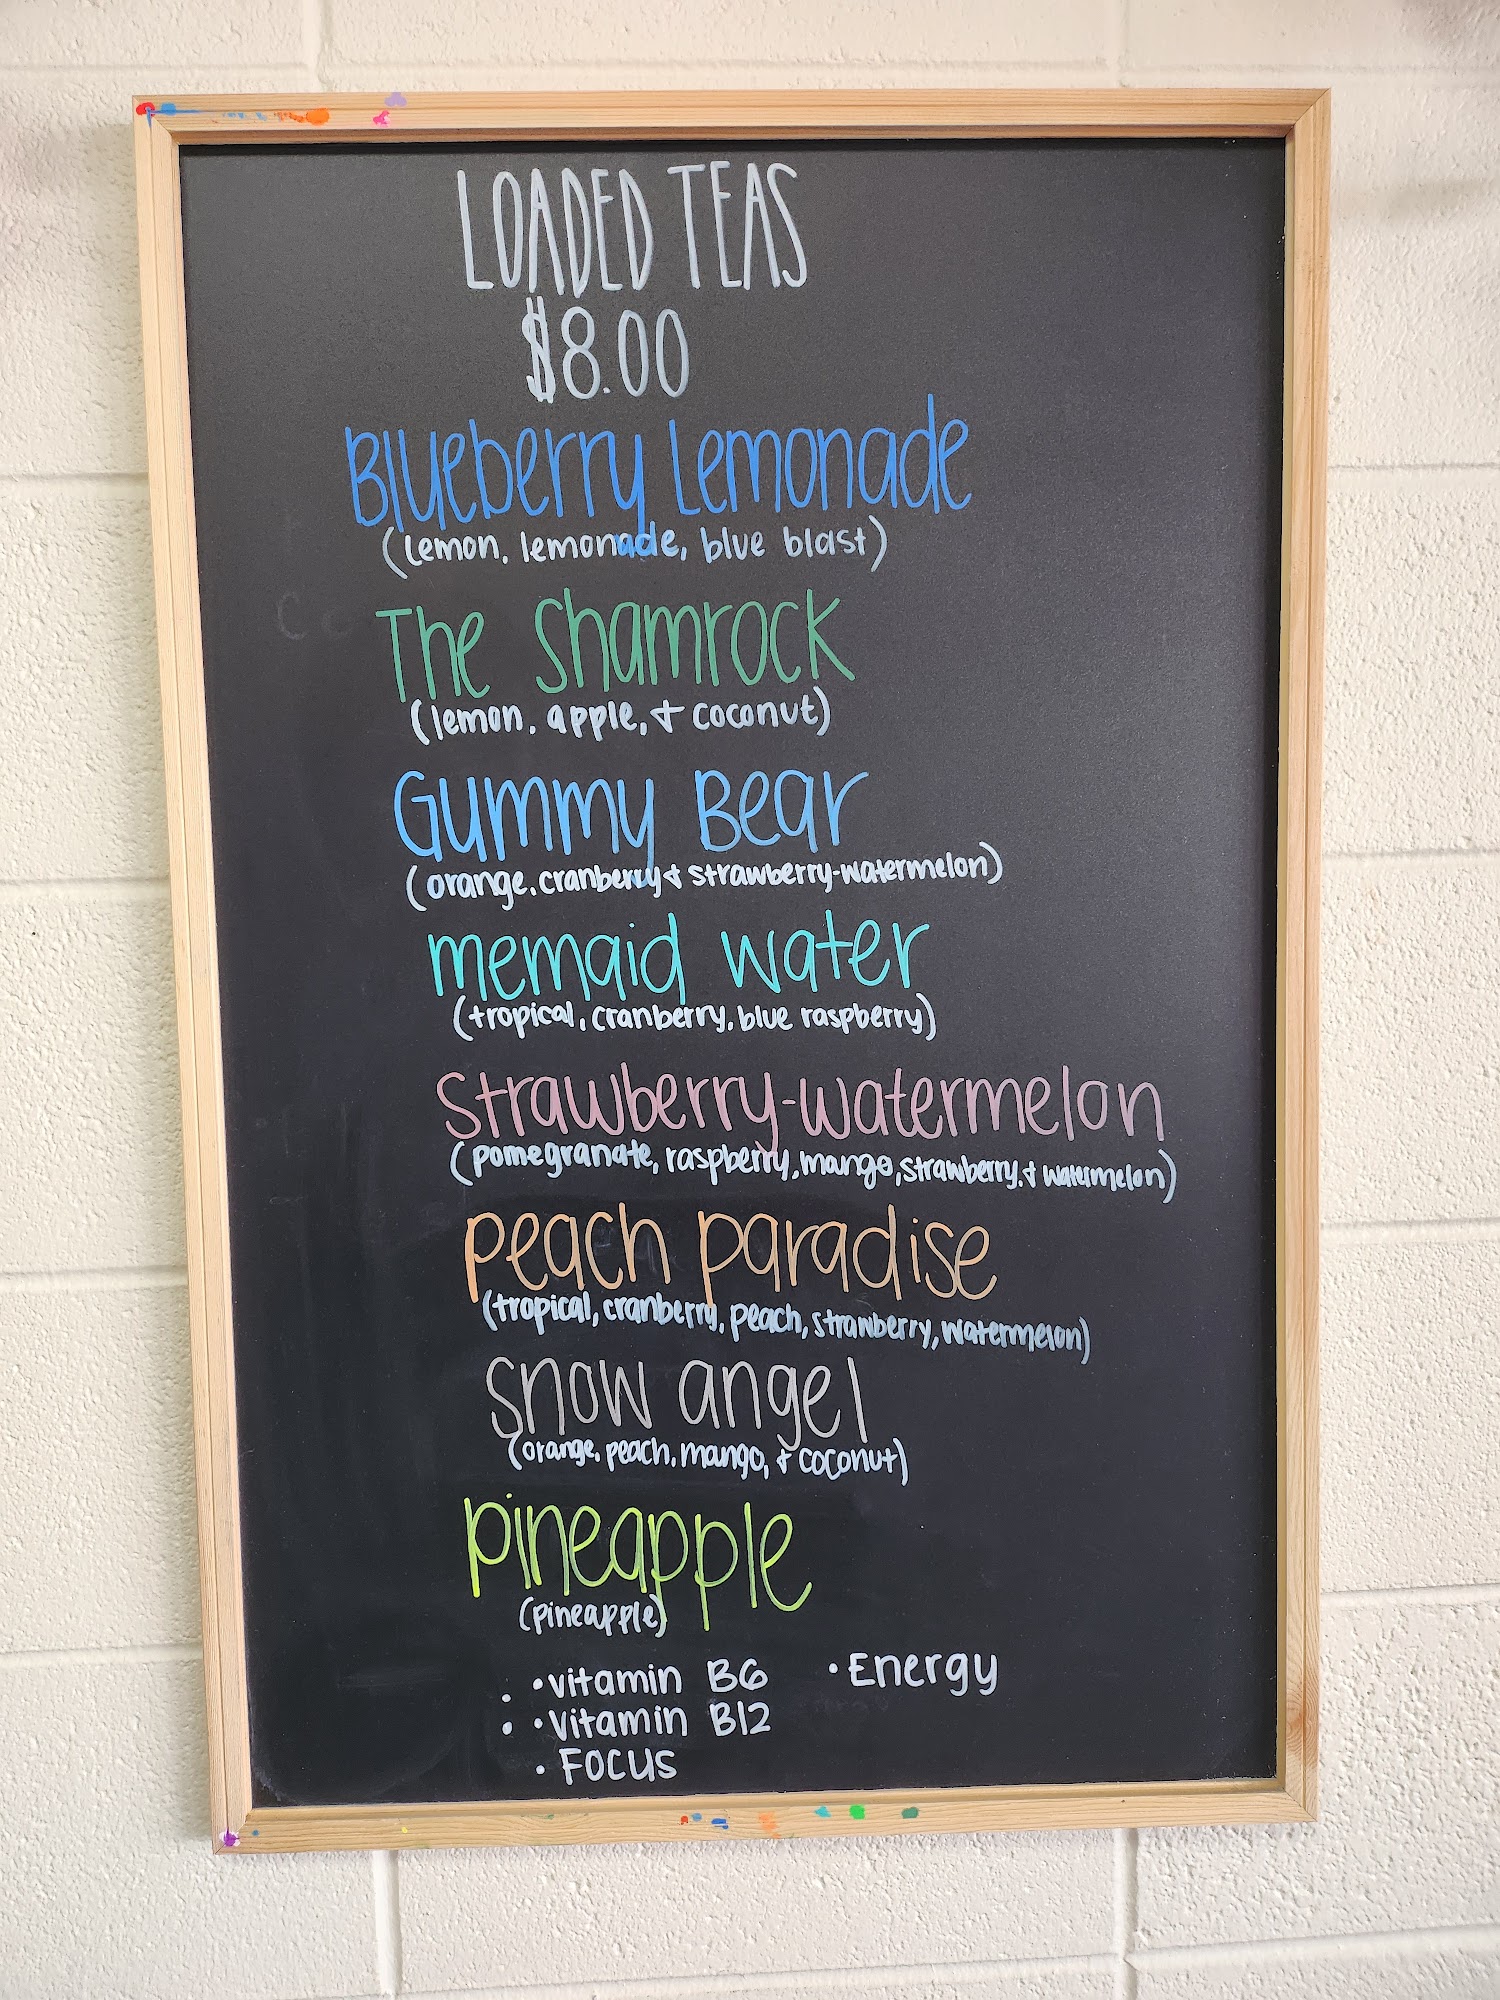 LOADED TEAS
$8.00
Blueberry Lemonade
(lemon, lemonade, blue blast)
The Shamrock
(lemon, apple, + coconut)
Gummy Bear
(orange, cranberry + strawberry-watermelon)
memaid water
(tropical, cranberry, blue raspberry)
Strawberry-watermelon
(pomegranate, raspberry, mango, strawberry, + watermelon)
peach paradise
(tropical, cranberry, peach, strawberry, watermelon)
snow angel
(orange, peach, mango, + coconut)
pineapple
(pineapple)
• vitamin B6 • Energy
• vitamin B12
• FOCUS